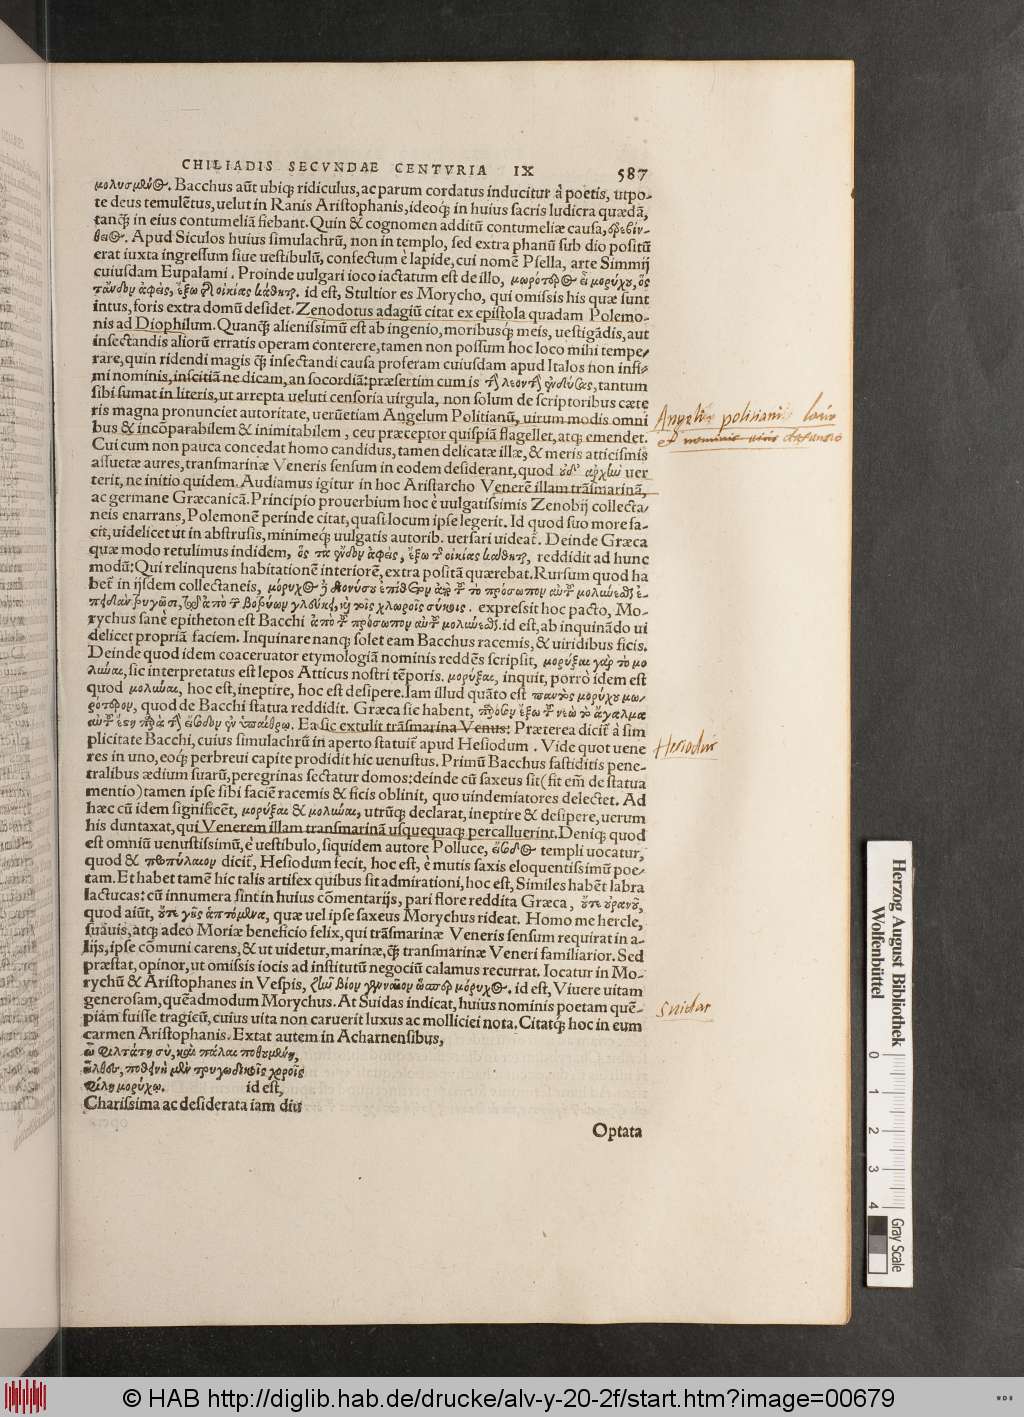 CHILIADIS SECVNDAE CENTVRIA IX 587
Bacchus aūt ubiq; ridiculus, ac parum cordatus inducitur à poetis, utpo-
te deus temulētus, uelut in Ranis Aristophanis, ideoq; in huius sacris ludicra quædā,
tanq̄ in eius contumeliā fiebant. Quin & cognomen additū contumeliæ causa,
Apud Siculos huius simulachrū, non in templo, sed extra phanū sub dio positū
erat iuxta ingressum siue uestibulū, confectum è lapide, cui nomē Psella, arte Simmij
cuiusdam Eupalami. Proinde uulgari ioco iactatum est de illo,
id est, Stultior es Morycho, qui omissis his quæ sunt
intus, foris extra domū desidet. Zenodotus adagiū citat ex epistola quadam Polemo-
nis ad Diophilum. Quanq̄ alienissimū est ab ingenio, moribusq; meis, uestigādis, aut
insectandis aliorū erratis operam conterere, tamen non possum hoc loco mihi tempe-
rare, quin ridendi magis q̄ insectandi causa proferam cuiusdam apud Italos non infi-
mi nominis, inscitiā ne dicam, an socordiā: præsertim cum is τῆ λεοντῆ tantum
sibi sumat in literis, ut arrepta ueluti censoria uirgula, non solum de scriptoribus cæte
ris magna pronunciet autoritate, uerūetiam Angelum Politianū, uirum modis omni
bus & incōparabilem & inimitabilem, ceu præceptor quispiā flagellet, atq; emendet.
Cui cum non pauca concedat homo candidus, tamen delicatæ illæ, & meris atticismis
assuetæ aures, transmarinæ Veneris sensum in eodem desiderant, quod uer
terit, ne initio quidem. Audiamus igitur in hoc Aristarcho Venerē illam trāsmarinā,
ac germane Græcanicā. Principio prouerbium hoc è uulgatissimis Zenobij collecta-
neis enarrans, Polemonē perinde citat, quasi locum ipse legerit. Id quod suo more fa-
cit, uidelicet ut in abstrusis, minimeq; uulgatis autorib. uersari uideat̄. Deinde Græca
quæ modo retulimus indidem, reddidit ad hunc
modū: Qui relinquens habitationē interiorē, extra positā quærebat. Rursum quod ha
bet̄ in ijsdem collectaneis,
expressit hoc pacto, Mo-
rychus sanè epitheton est Bacchi id est, ab inquinādo ui
delicet propriā faciem. Inquinare nanq; solet eam Bacchus racemis, & uiridibus ficis.
Deinde quod idem coaceruator etymologiā nominis reddēs scripsit, μορύξαι γὰρ τὸ μο
λῦναι, sic interpretatus est lepos Atticus nostri tēporis. μορύξαι, inquit, porrò idem est
quod μολῦναι, hoc est, ineptire, hoc est desipere. Iam illud quāto est
quod de Bacchi statua reddidit. Græca sic habent,
Ea sic extulit trāsmarina Venus: Præterea dicit̄ à sim
plicitate Bacchi, cuius simulachrū in aperto statuit̄ apud Hesiodum. Vide quot uene
res in uno, eoq; perbreui capite prodidit hic uenustus. Primū Bacchus fastiditis pene-
tralibus ædium suarū, peregrinas sectatur domos: deinde cū saxeus sit (fit em̄ de statua
mentio) tamen ipse sibi faciē racemis & ficis oblinit, quo uindemiatores delectet. Ad
hæc cū idem significēt, μορύξαι & μολῦναι, utrūq; declarat, ineptire & desipere, uerum
his duntaxat, qui Venerem illam transmarinā usquequaq; percalluerint. Deniq; quod
est omniū uenustissimū, è uestibulo, siquidem autore Polluce, templi uocatur,
quod & dicit̄, Hesiodum fecit, hoc est, è mutis saxis eloquentissimū poe-
tam. Et habet tamē hic talis artifex quibus sit admirationi, hoc est, Similes habēt labra
lactucas: cū innumera sint in huius cōmentarijs, pari flore reddita Græca,
quod aiūt, quæ uel ipse saxeus Morychus rideat. Homo me hercle,
suauis, atq; adeo Moriæ beneficio felix, qui trāsmarinæ Veneris sensum requirat in a-
lijs, ipse cōmuni carens, & ut uidetur, marinæ, q̄ transmarinæ Veneri familiarior. Sed
præstat, opinor, ut omissis iocis ad institutū negociū calamus recurrat. Iocatur in Mo-
rychū & Aristophanes in Vespis, id est, Viuere uitam
generosam, quēadmodum Morychus. At Suidas indicat, huius nominis poetam quē-
piam fuisse tragicū, cuius uita non caruerit luxus ac molliciei nota. Citatq; hoc in eum
carmen Aristophanis. Extat autem in Acharnensibus,
id est,
Charissima ac desiderata iam diu
Optata
Angeli politiani
Hesiodus
Suidas
Herzog August Bibliothek
Wolfenbüttel
0 1 2 3 4
Gray Scale
© HAB http://diglib.hab.de/drucke/alv-y-20-2f/start.htm?image=00679